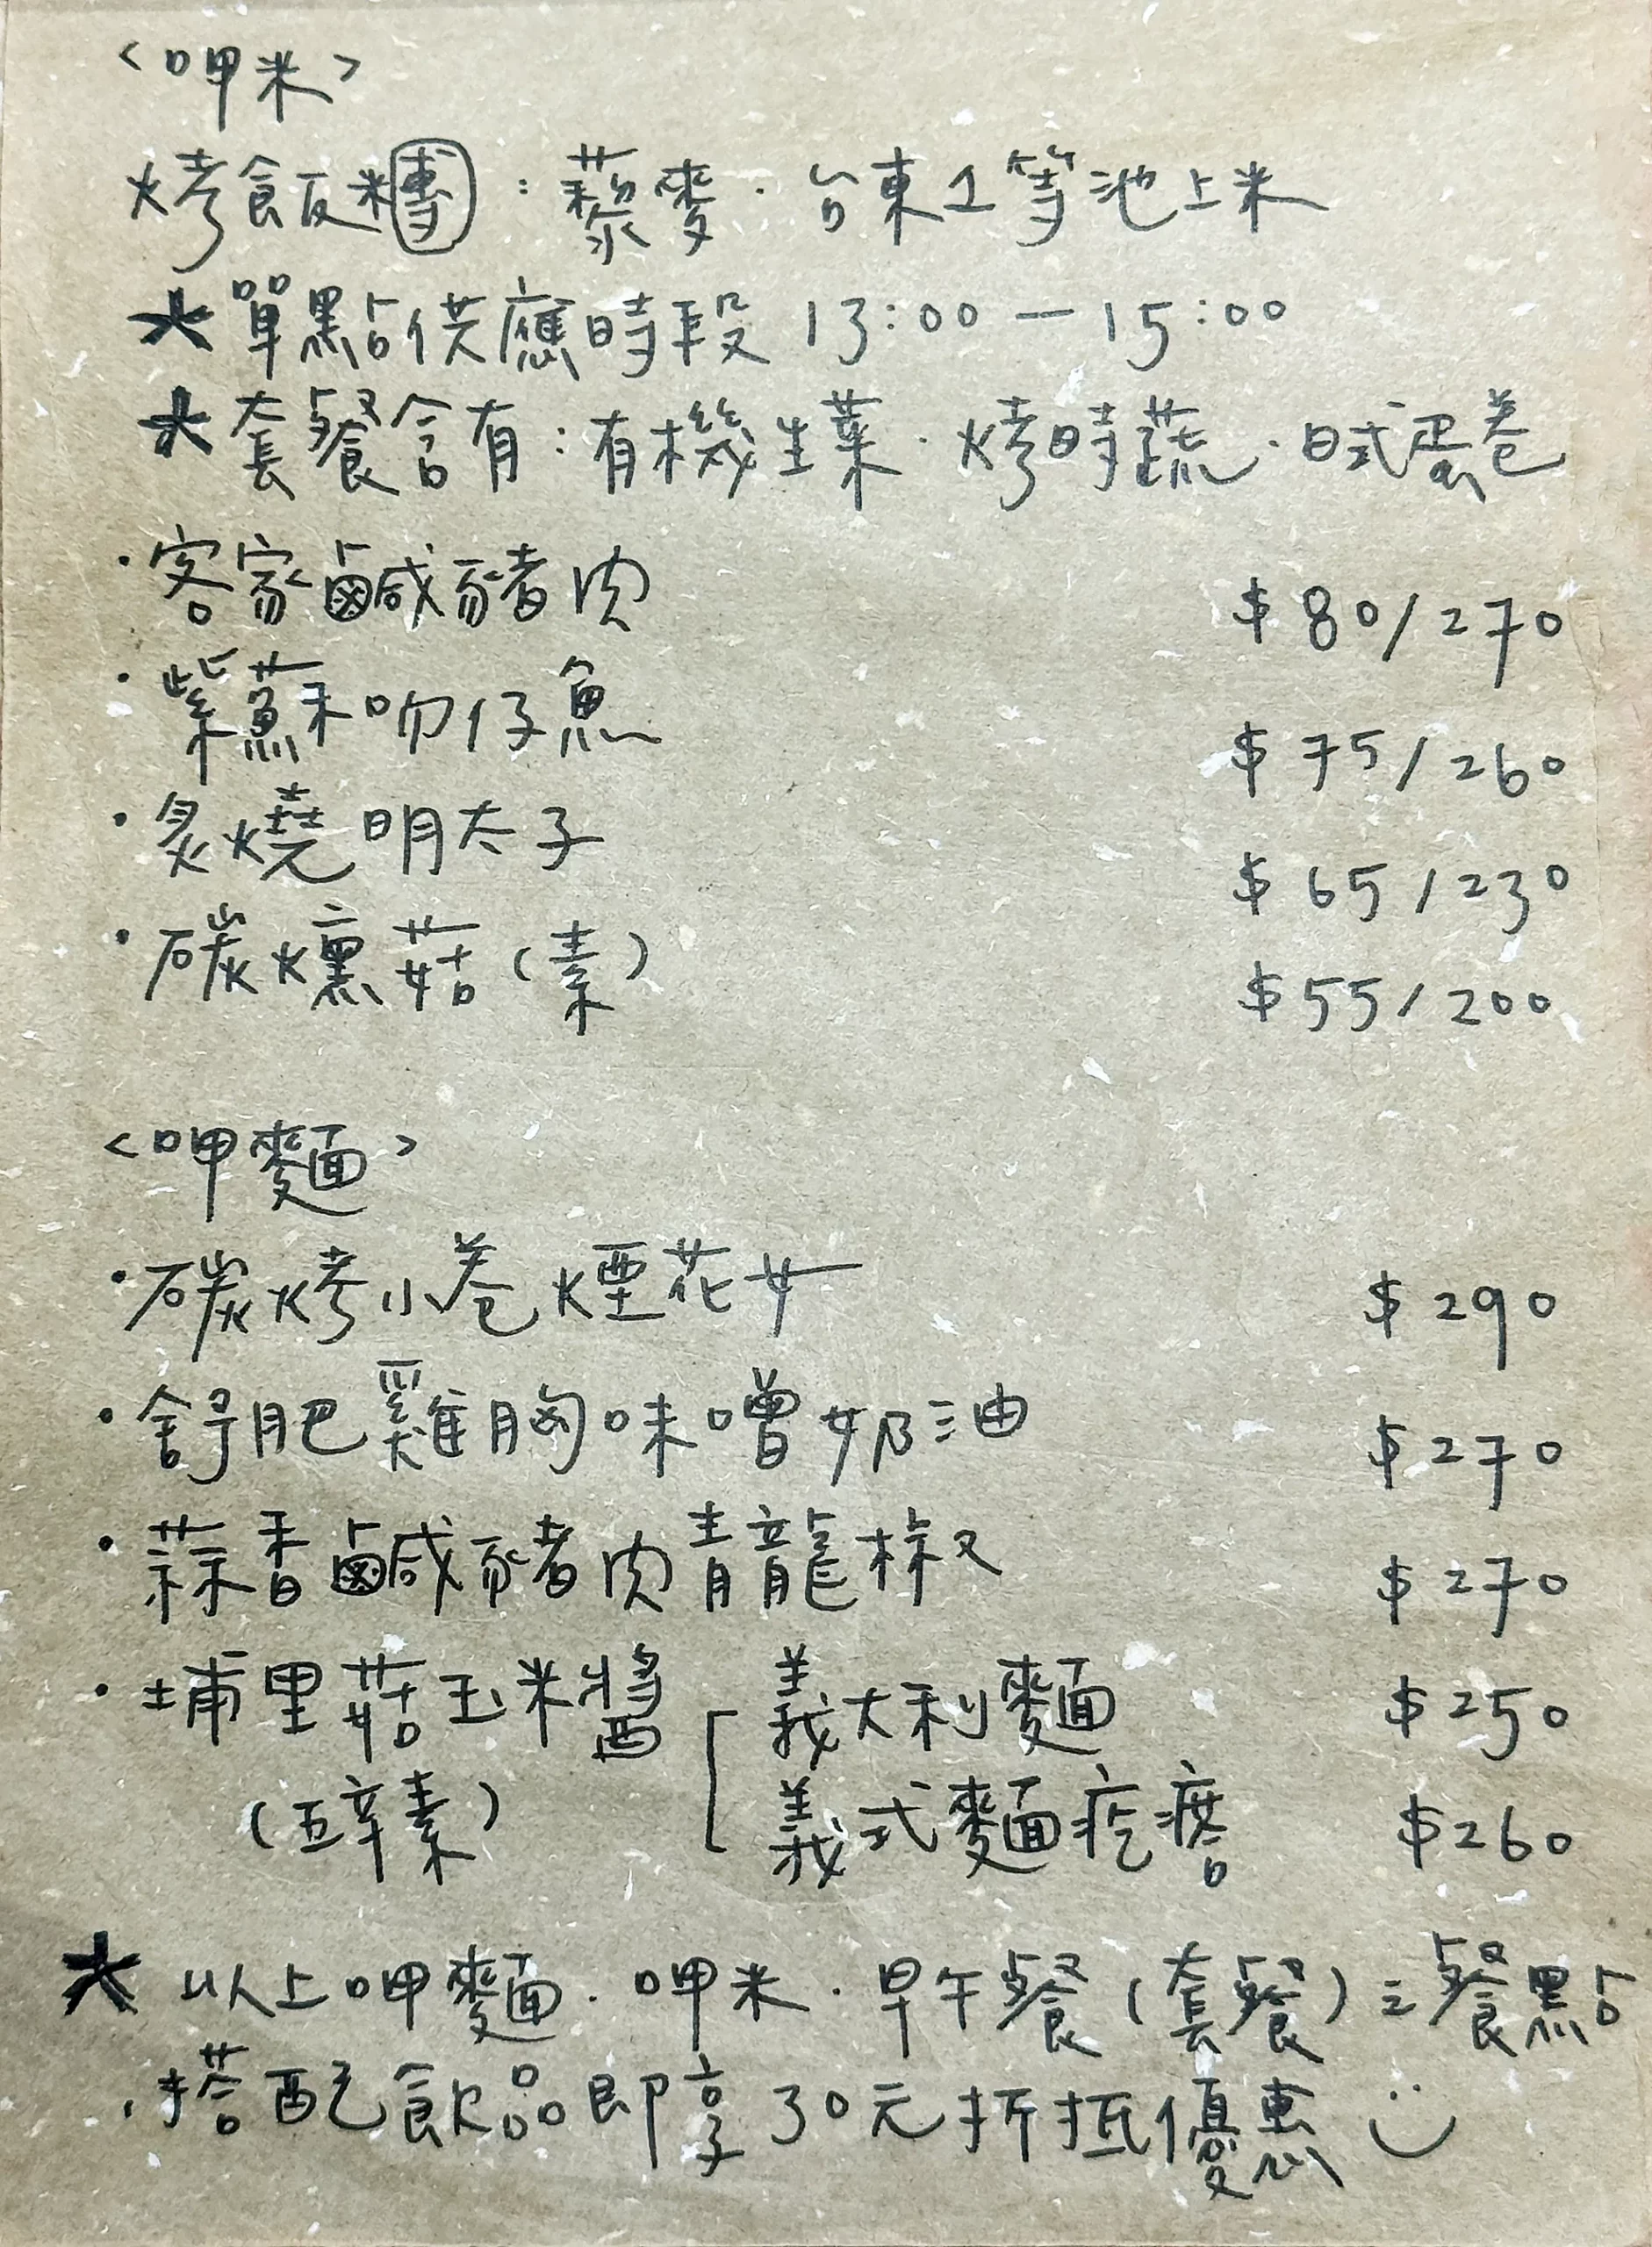 <呷米>
烤飯糰：藜麥．台東1等池上米
★單點供應時段 13:00－15:00
★套餐含有：有機生菜．烤時蔬．日式蛋卷
・客家鹹豬肉 $80/270
・紫蘇吻仔魚 $75/260
・炙燒明太子 $65/230
・碳燻菇(素) $55/200
<呷麵>
・碳烤小卷煙花女 $290
・舒肥雞胸味噌奶油 $270
・蒜香鹹豬肉青龍椒 $270
・埔里菇玉米醬 義大利麵 $250
(五辛素) 義式麵疙瘩 $260
★以上呷麵．呷米．早午餐(套餐)之餐點
搭配飲品即享30元折抵優惠